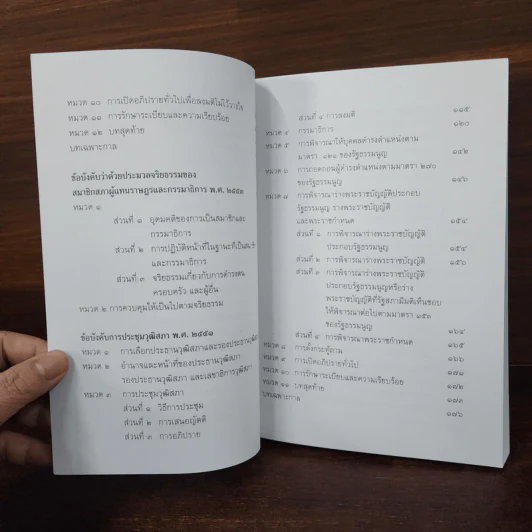 หมวด ๑๐ การเปิดอภิปรายทั่วไปเพื่อลงมติไม่ไว้วางใจ
หมวด ๑๑ การรักษาระเบียบและความเรียบร้อย
หมวด ๑๒ บทสุดท้าย
บทเฉพาะกาล
ข้อบังคับว่าด้วยประมวลจริยธรรมของ
สมาชิกสภาผู้แทนราษฎรและกรรมาธิการ พ.ศ. ๒๕๕๓
หมวด ๑
ส่วนที่ ๑ อุดมคติของการเป็นสมาชิกและ
กรรมาธิการ
ส่วนที่ ๒ การปฏิบัติหน้าที่ในฐานะที่เป็นสมาชิก
และกรรมาธิการ
ส่วนที่ ๓ จริยธรรมเกี่ยวกับการดำรงตน
ครอบครัว และผู้อื่น
หมวด ๒ การควบคุมให้เป็นไปตามจริยธรรม
ข้อบังคับการประชุมวุฒิสภา พ.ศ. ๒๕๕๑
หมวด ๑ การเลือกประธานวุฒิสภาและรองประธานวุฒิสภา
หมวด ๒ อำนาจและหน้าที่ของประธานวุฒิสภา
รองประธานวุฒิสภา และเลขาธิการวุฒิสภา
หมวด ๓ การประชุมวุฒิสภา
ส่วนที่ ๑ วิธีการประชุม
ส่วนที่ ๒ การเสนอญัตติ
ส่วนที่ ๓ การอภิปราย
ส่วนที่ ๔ การลงมติ ๑๑๕
หมวด ๔ กรรมาธิการ ๑๒๐
หมวด ๕ การพิจารณาให้บุคคลดำรงตำแหน่งตาม
มาตรา ๑๒๑ ของรัฐธรรมนูญ ๑๔๒
หมวด ๖ การถอดถอนผู้ดำรงตำแหน่งตามมาตรา ๒๗๐
ของรัฐธรรมนูญ ๑๔๖
หมวด ๗ การพิจารณาร่างพระราชบัญญัติประกอบ
รัฐธรรมนูญ ร่างพระราชบัญญัติ
และพระราชกำหนด ๑๕๔
ส่วนที่ ๑ การพิจารณาร่างพระราชบัญญัติ
ประกอบรัฐธรรมนูญ ๑๕๔
ส่วนที่ ๒ การพิจารณาร่างพระราชบัญญัติ ๑๕๖
ส่วนที่ ๓ การพิจารณาร่างพระราชบัญญัติ
ประกอบรัฐธรรมนูญหรือร่าง
พระราชบัญญัติที่รัฐสภามีมติเห็นชอบ
ให้พิจารณาต่อไปตามมาตรา ๑๕๓
ของรัฐธรรมนูญ ๑๖๔
ส่วนที่ ๔ การพิจารณาพระราชกำหนด ๑๖๕
หมวด ๘ การตั้งกระทู้ถาม ๑๖๖
หมวด ๙ การเปิดอภิปรายทั่วไป ๑๗๑
หมวด ๑๐ การรักษาระเบียบและความเรียบร้อย ๑๗๒
หมวด ๑๑ บทสุดท้าย ๑๗๔
บทเฉพาะกาล ๑๗๖